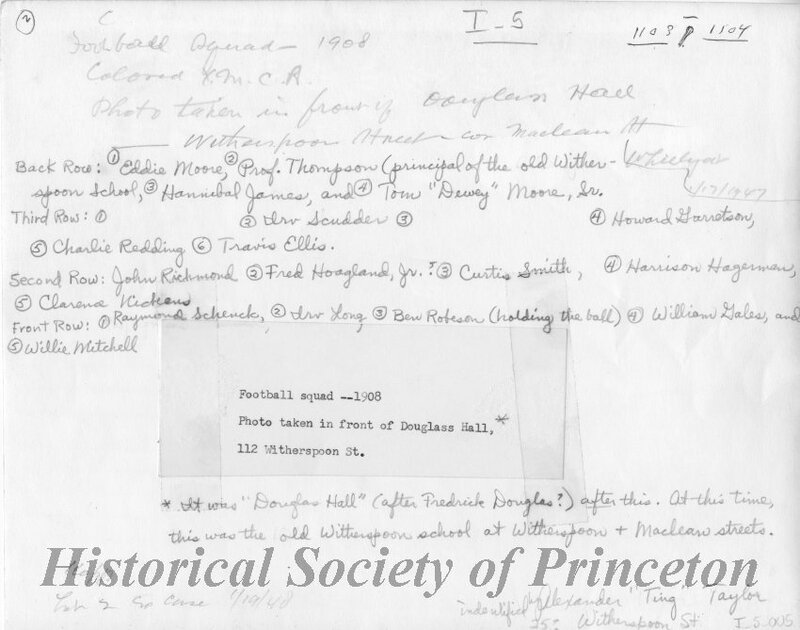 2 C I-5 1103 P 1104
Football Squad - 1908
Colored Y.M.C.A.
Photo taken in front of Douglass Hall
Witherspoon Street cor Maclean St
Back Row: ① Eddie Moore, ② Prof. Thompson (principal of the old Wither-
spoon School, ③ Hannibal James, and ④ Tom "Dewey" Moore, Sr.
1/17/1947
Third Row: ① ② Irv Scudder ③ ④ Howard Garretson,
⑤ Charlie Redding ⑥ Travis Ellis.
Second Row: John Richmond ② Fred Hoagland, Jr.? ③ Curtis Smith, ④ Harrison Hagerman,
⑤ Clarence Nickens
Front Row: ① Raymond Schenck, ② Irv Long, ③ Ben Robeson (holding the ball) ④ William Gales, and
⑤ Willie Mitchell
Football squad --1908
Photo taken in front of Douglass Hall,*
112 Witherspoon St.
* It was "Douglas Hall" (after Fredrick Douglas?) after this. At this time,
this was the old Witherspoon school at Witherspoon + Maclean streets.
Historical Society of Princeton
1/19/48
indentified by Alexander "Ting" Taylor
Witherspoon St I.5.005